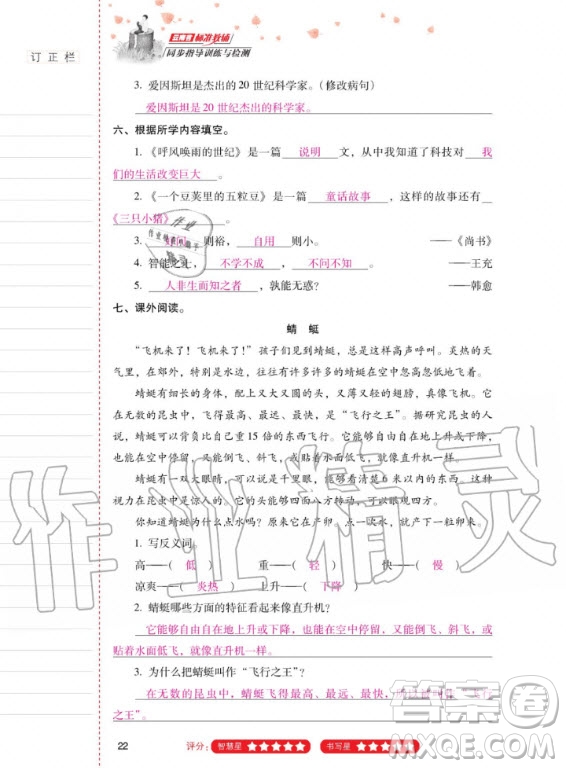 订正栏
标准教辅
同步指导训练与检测
3. 爱因斯坦是杰出的 20 世纪科学家。(修改病句)
爱因斯坦是 20 世纪杰出的科学家。
六、根据所学内容填空。
1. 《呼风唤雨的世纪》是一篇 说明 文，从中我知道了科技对 我
们的生活改变巨大 。
2. 《一个豆荚里的五粒豆》是一篇 童话故事 ，这样的故事还有
《三只小猪》 。
3. 好问 则裕， 自用 则小。 ——《尚书》
4. 智能之士， 不学不成 ， 不问不知 。 ——王充
5. 人非生而知之者 ，孰能无惑？ ——韩愈
七、课外阅读。
蜻 蜓
“飞机来了！飞机来了！”孩子们见到蜻蜓，总是这样高声呼叫。炎热的天
气里，在郊外，特别是水边，往往有许多许多的蜻蜓在空中忽高忽低地飞着。
蜻蜓有细长的身体，配上又大又圆的头，又薄又轻的翅膀，真像一架飞机。
在无数的昆虫中，蜻蜓飞得最高、最远、最快，是“飞行之王”。据研究昆虫的人
说，蜻蜓可以背负比自己重 15 倍的东西飞行。它像飞机，能自由自在地上升或
下降，也能在空中停留，又能倒飞、斜飞，或贴着水面飞，就像直升机一样。
蜻蜓有一双大眼睛，可以说是千里眼，能够看清楚 6 米以内的东西，这在
昆虫中是惊人的。它的头能够四面八方转动，可以一面飞，一面捉虫吃。
你知道蜻蜓为什么点水吗？原来它在产卵。点一次水，就产下一粒卵来。
1. 写反义词。
高——( 低 ) 重——( 轻 ) 快——( 慢 )
凉爽——( 炎热 ) 上升——( 下降 )
2. 蜻蜓哪些方面的特征看起来像直升机？
它能够自由自在地上升或下降，也能在空中停留，又能倒飞、斜飞，或
贴着水面飞，就像直升机一样。
3. 为什么把蜻蜓叫作“飞行之王”？
在无数的昆虫中，蜻蜓飞得最高、最远、最快，
之王”。
22 评分： 智慧星 ★★★★★ 书写星 ★★★★★
作业精灵
答案圈
MXQE.COM